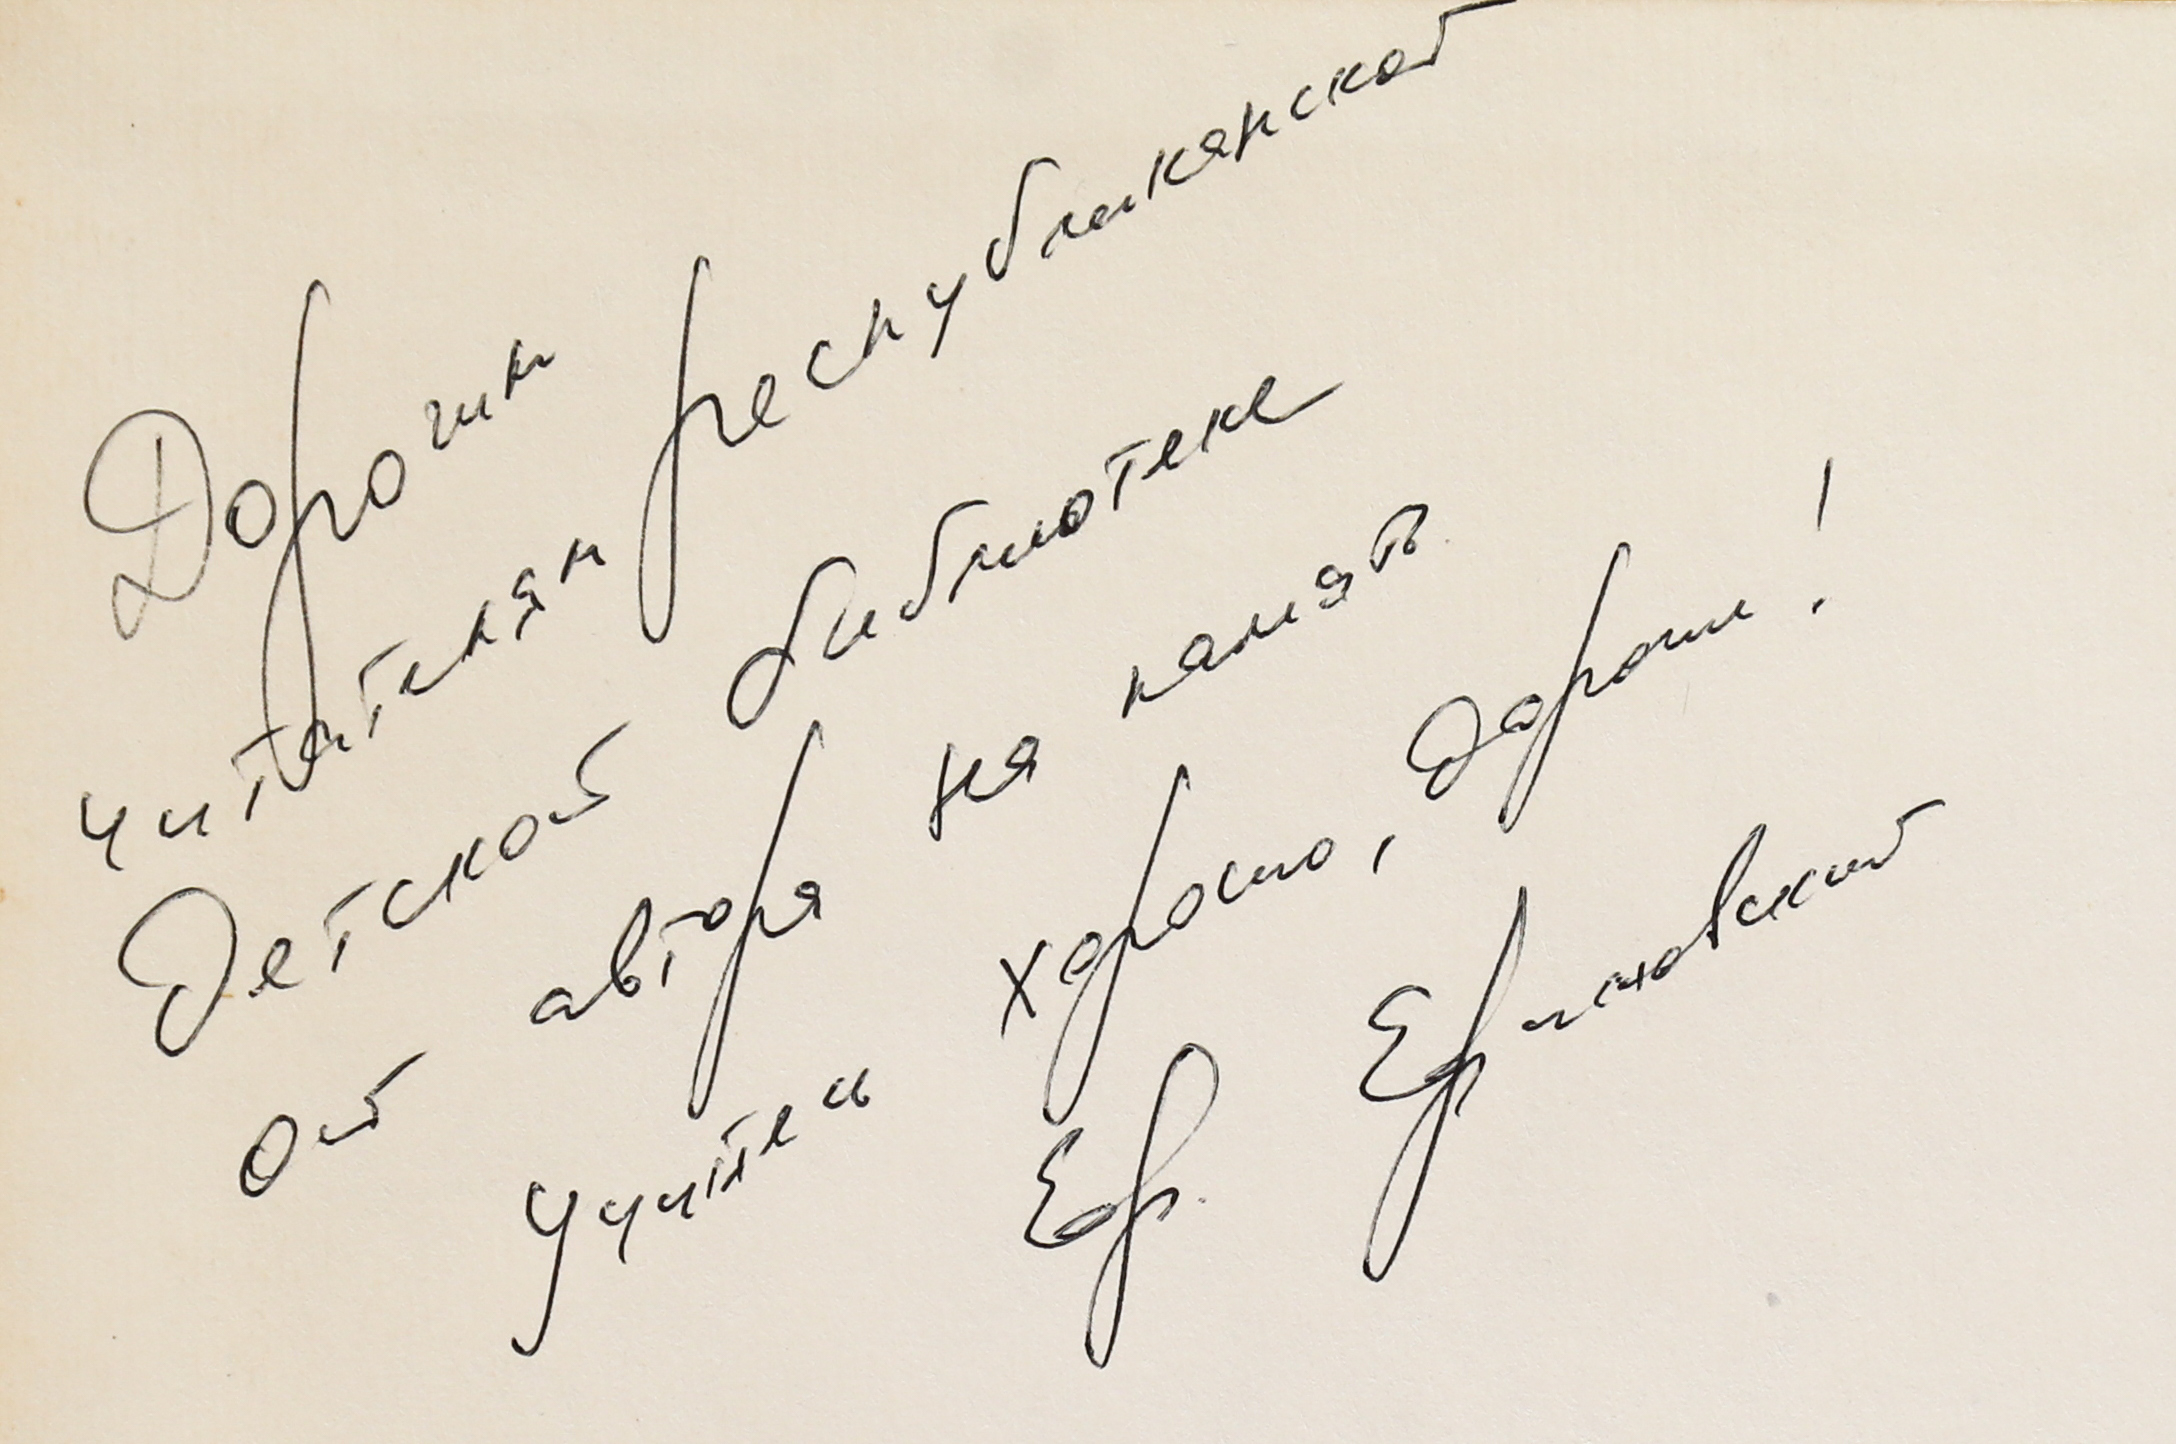 Дорогим
читателям республиканской
детской библиотеке
от автора на память.
Учитесь хорошо, дорогие!
Ер.